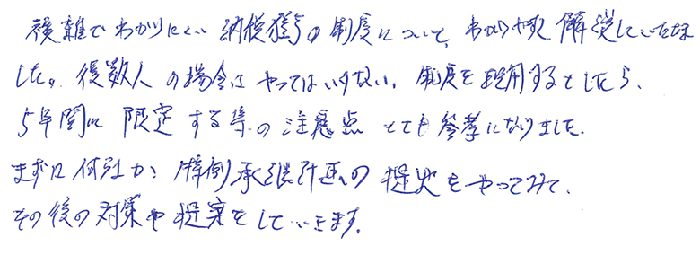 複雑でわかりにくい納税猶予の制度について、わかりやすく解説していただき
ました。後数人の場合はやってはいけない。制度を適用するとしたら、
5年間に限定する等の注意点とても参考になりました。
まずは何社か特例承継計画の提出をやってみて、
その後の対策や提案をしていきます。